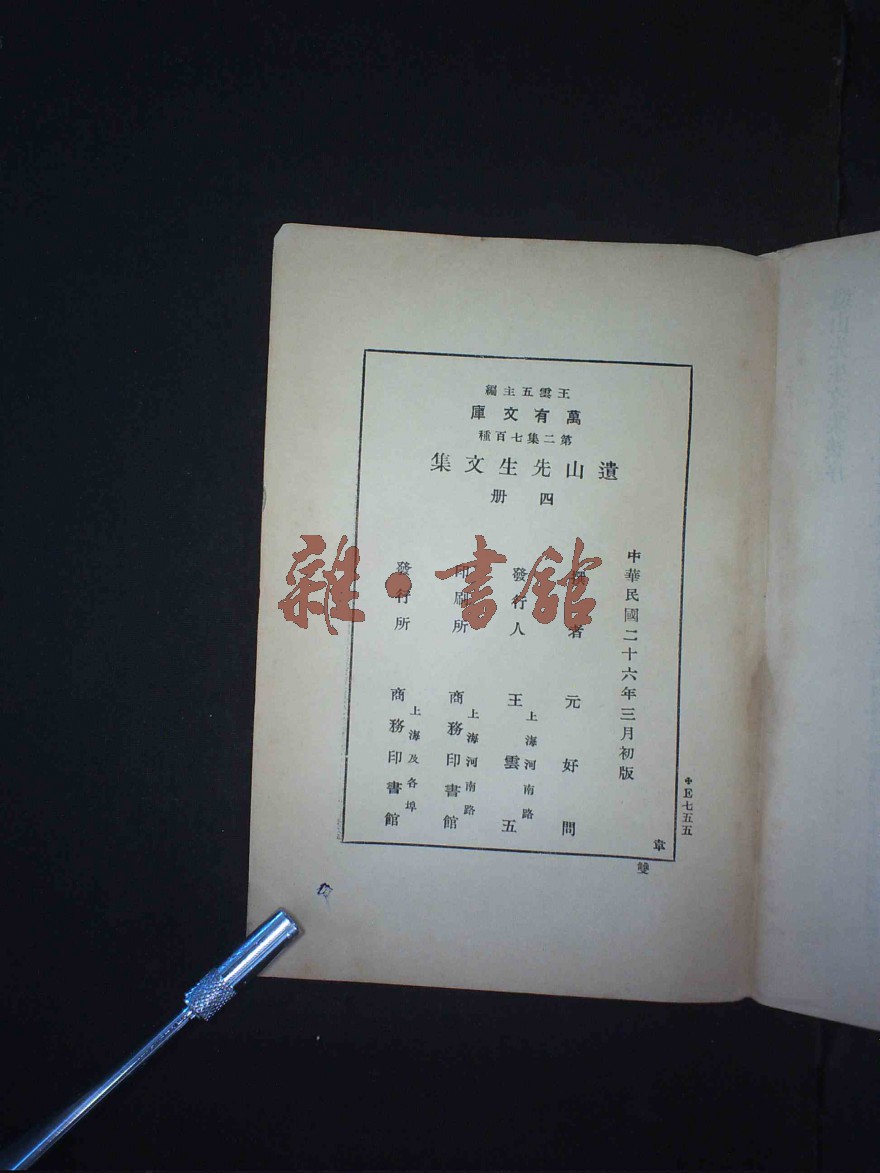 王雲五主編
萬有文庫
第二集七百種
遺山先生文集
四册
中華民國二十六年三月初版
撰者 元好問
發行人 王雲五
上海河南路
印刷所 商務印書館
上海河南路
發行所 商務印書館
上海及各埠
✠E七五五
章
雙
雜·書館